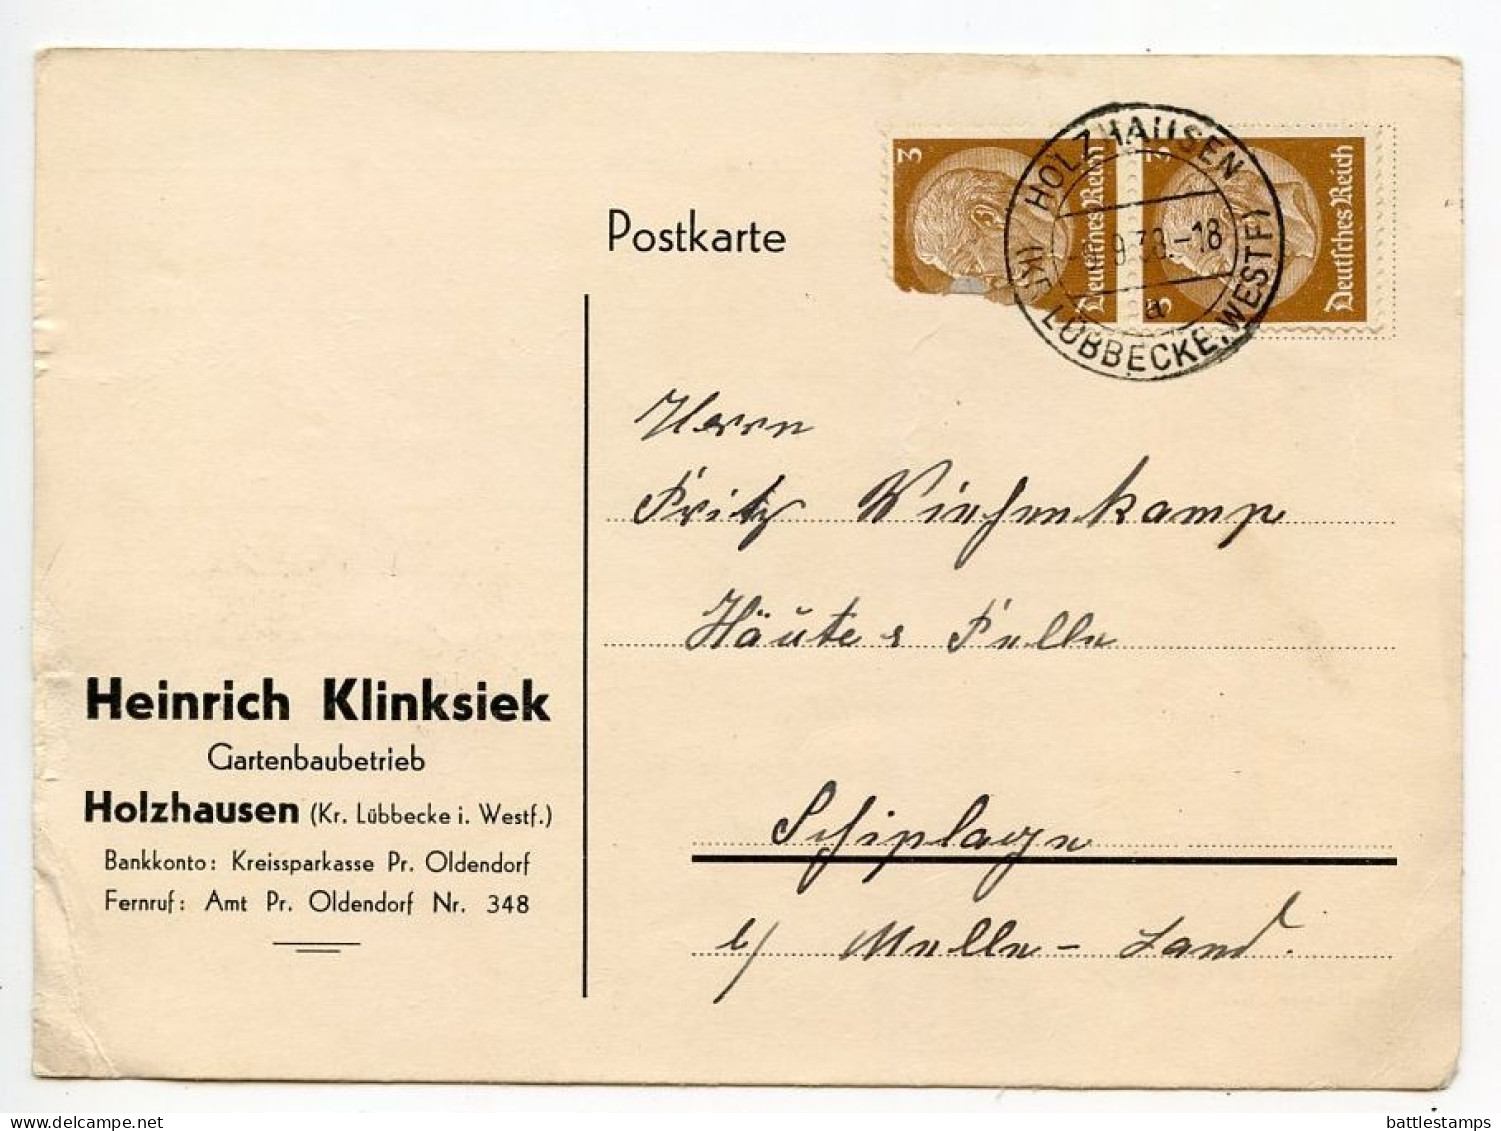 Postkarte
3
Deutsches Reich
3
3
Deutsches Reich
HOLZHAUSEN
9.38.-18
a
(KR. LÜBBECKE, WESTF)
Herrn
Fritz Wiehenkamp
Häute & Felle
Schiplage
b/ Melle-Land.
Heinrich Klinksiek
Gartenbaubetrieb
Holzhausen (Kr. Lübbecke i. Westf.)
Bankkonto: Kreissparkasse Pr. Oldendorf
Fernruf: Amt Pr. Oldendorf Nr. 348
delcampe.net
battlestamps